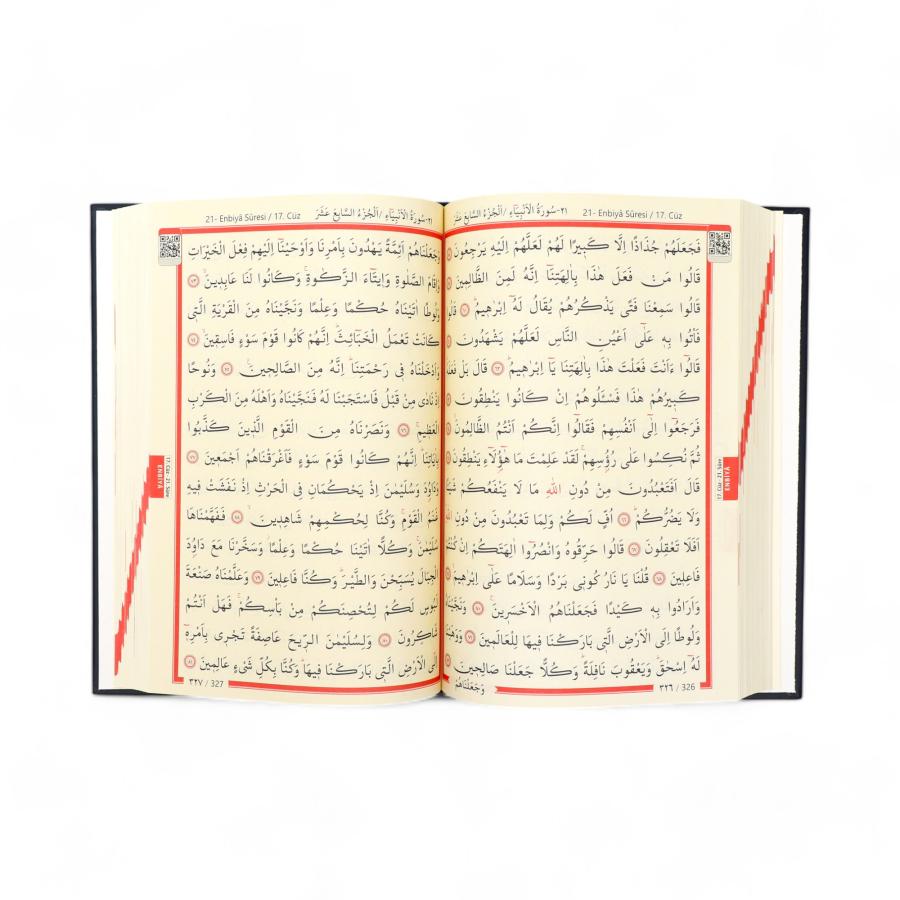 ٢١-سُورَةُ الْاَنْبِيَاءِ /اَلْجُزْءُ السَّابِعَ عَشَرَ 21- Enbiyâ Sûresi / 17. Cüz
فَجَعَلَهُمْ جُذَاذًا اِلَّا كَبٖيرًا لَهُمْ لَعَلَّهُمْ اِلَيْهِ يَرْجِعُونَ
قَالُوا مَنْ فَعَلَ هٰذَا بِاٰلِهَتِنَٓا اِنَّهُ لَمِنَ الظَّالِمٖينَ
قَالُوا سَمِعْنَا فَتًى يَذْكُرُهُمْ يُقَالُ لَهُٓ اِبْرٰهٖيمُ ﴿٦٠﴾ قَالُوا
فَأْتُوا بِهٖ عَلٰٓى اَعْيُنِ النَّاسِ لَعَلَّهُمْ يَشْهَدُونَ
قَالُٓوا ءَاَنْتَ فَعَلْتَ هٰذَا بِاٰلِهَتِنَا يَٓا اِبْرٰهٖيمُ ﴿٦٢﴾ قَالَ بَلْ فَعَلَهُ
كَبٖيرُهُمْ هٰذَا فَسْـَٔلُوهُمْ اِنْ كَانُوا يَنْطِقُونَ
فَرَجَعُٓوا اِلٰٓى اَنْفُسِهِمْ فَقَالُٓوا اِنَّكُمْ اَنْتُمُ الظَّالِمُونَ
ثُمَّ نُكِسُوا عَلٰى رُؤُسِهِمْ لَقَدْ عَلِمْتَ مَا هٰٓؤُ۬لَٓاءِ يَنْطِقُونَ
قَالَ اَفَتَعْبُدُونَ مِنْ دُونِ اللّٰهِ مَا لَا يَنْفَعُكُمْ شَيْـًٔا
وَلَا يَضُرُّكُمْ ﴿٦٦﴾ اُفٍّ لَكُمْ وَلِمَا تَعْبُدُونَ مِنْ دُونِ اللّٰهِ
اَفَلَا تَعْقِلُونَ ﴿٦٧﴾ قَالُوا حَرِّقُوهُ وَانْصُرُٓوا اٰلِهَتَكُمْ اِنْ كُنْتُمْ
فَاعِلٖينَ ﴿٦٨﴾ قُلْنَا يَا نَارُ كُونٖي بَرْدًا وَسَلَامًا عَلٰٓى اِبْرٰهٖيمَ
وَاَرَادُوا بِهٖ كَيْدًا فَجَعَلْنَاهُمُ الْاَخْسَرٖينَ ﴿٧٠﴾ وَنَجَّيْنَاهُ
وَلُوطًا اِلَى الْاَرْضِ الَّتٖي بَارَكْنَا فٖيهَا لِلْعَالَمٖينَ ﴿٧١﴾ وَوَهَبْنَا
لَهُٓ اِسْحٰقَ وَيَعْقُوبَ نَافِلَةً وَكُلًّا جَعَلْنَا صَالِحٖينَ
٣٢٦ / 326
وَجَعَلْنَاهُمْ
17. Cüz - 21. Sûre
ENBİYÂ
21- Enbiyâ Sûresi / 17. Cüz ٢١-سُورَةُ الْاَنْبِيَاءِ /اَلْجُزْءُ السَّابِعَ عَشَرَ
وَجَعَلْنَاهُمْ اَئِمَّةً يَهْدُونَ بِاَمْرِنَا وَاَوْحَيْنَٓا اِلَيْهِمْ فِعْلَ الْخَيْرَاتِ
وَاِقَامَ الصَّلٰوةِ وَاٖيتَٓاءَ الزَّكٰوةِ وَكَانُوا لَنَا عَابِدٖينَ ﴿٧٣﴾
وَلُوطًا اٰتَيْنَاهُ حُكْمًا وَعِلْمًا وَنَجَّيْنَاهُ مِنَ الْقَرْيَةِ الَّتٖي
كَانَتْ تَعْمَلُ الْخَبَٓائِثَ اِنَّهُمْ كَانُوا قَوْمَ سَوْءٍ فَاسِقٖينَ ﴿٧٤﴾
وَاَدْخَلْنَاهُ فٖي رَحْمَتِنَا اِنَّهُ مِنَ الصَّالِحٖينَ ﴿٧٥﴾ وَنُوحًا
اِذْ نَادٰى مِنْ قَبْلُ فَاسْتَجَبْنَا لَهُ فَنَجَّيْنَاهُ وَاَهْلَهُ مِنَ الْكَرْبِ
الْعَظٖيمِ ﴿٧٦﴾ وَنَصَرْنَاهُ مِنَ الْقَوْمِ الَّذٖينَ كَذَّبُوا
بِاٰيَاتِنَا اِنَّهُمْ كَانُوا قَوْمَ سَوْءٍ فَاَغْرَقْنَاهُمْ اَجْمَعٖينَ ﴿٧٧﴾
وَدَاوُدَ وَسُلَيْمٰنَ اِذْ يَحْكُمَانِ فِي الْحَرْثِ اِذْ نَفَشَتْ فٖيهِ
غَنَمُ الْقَوْمِ وَكُنَّا لِحُكْمِهِمْ شَاهِدٖينَ ﴿٧٨﴾ فَفَهَّمْنَاهَا
سُلَيْمٰنَ وَكُلًّا اٰتَيْنَا حُكْمًا وَعِلْمًا وَسَخَّرْنَا مَعَ دَاوُدَ
الْجِبَالَ يُسَبِّحْنَ وَالطَّيْرَ وَكُنَّا فَاعِلٖينَ ﴿٧٩﴾ وَعَلَّمْنَاهُ صَنْعَةَ
لَبُوسٍ لَكُمْ لِتُحْصِنَكُمْ مِنْ بَأْسِكُمْ فَهَلْ اَنْتُمْ
شَاكِرُونَ ﴿٨٠﴾ وَلِسُلَيْمٰنَ الرّٖيحَ عَاصِفَةً تَجْرٖي بِاَمْرِهٖٓ
اِلَى الْاَرْضِ الَّتٖي بَارَكْنَا فٖيهَا وَكُنَّا بِكُلِّ شَيْءٍ عَالِمٖينَ ﴿٨١﴾
٣٢٧ / 327
17. Cüz - 21. Sûre
ENBİYÂ